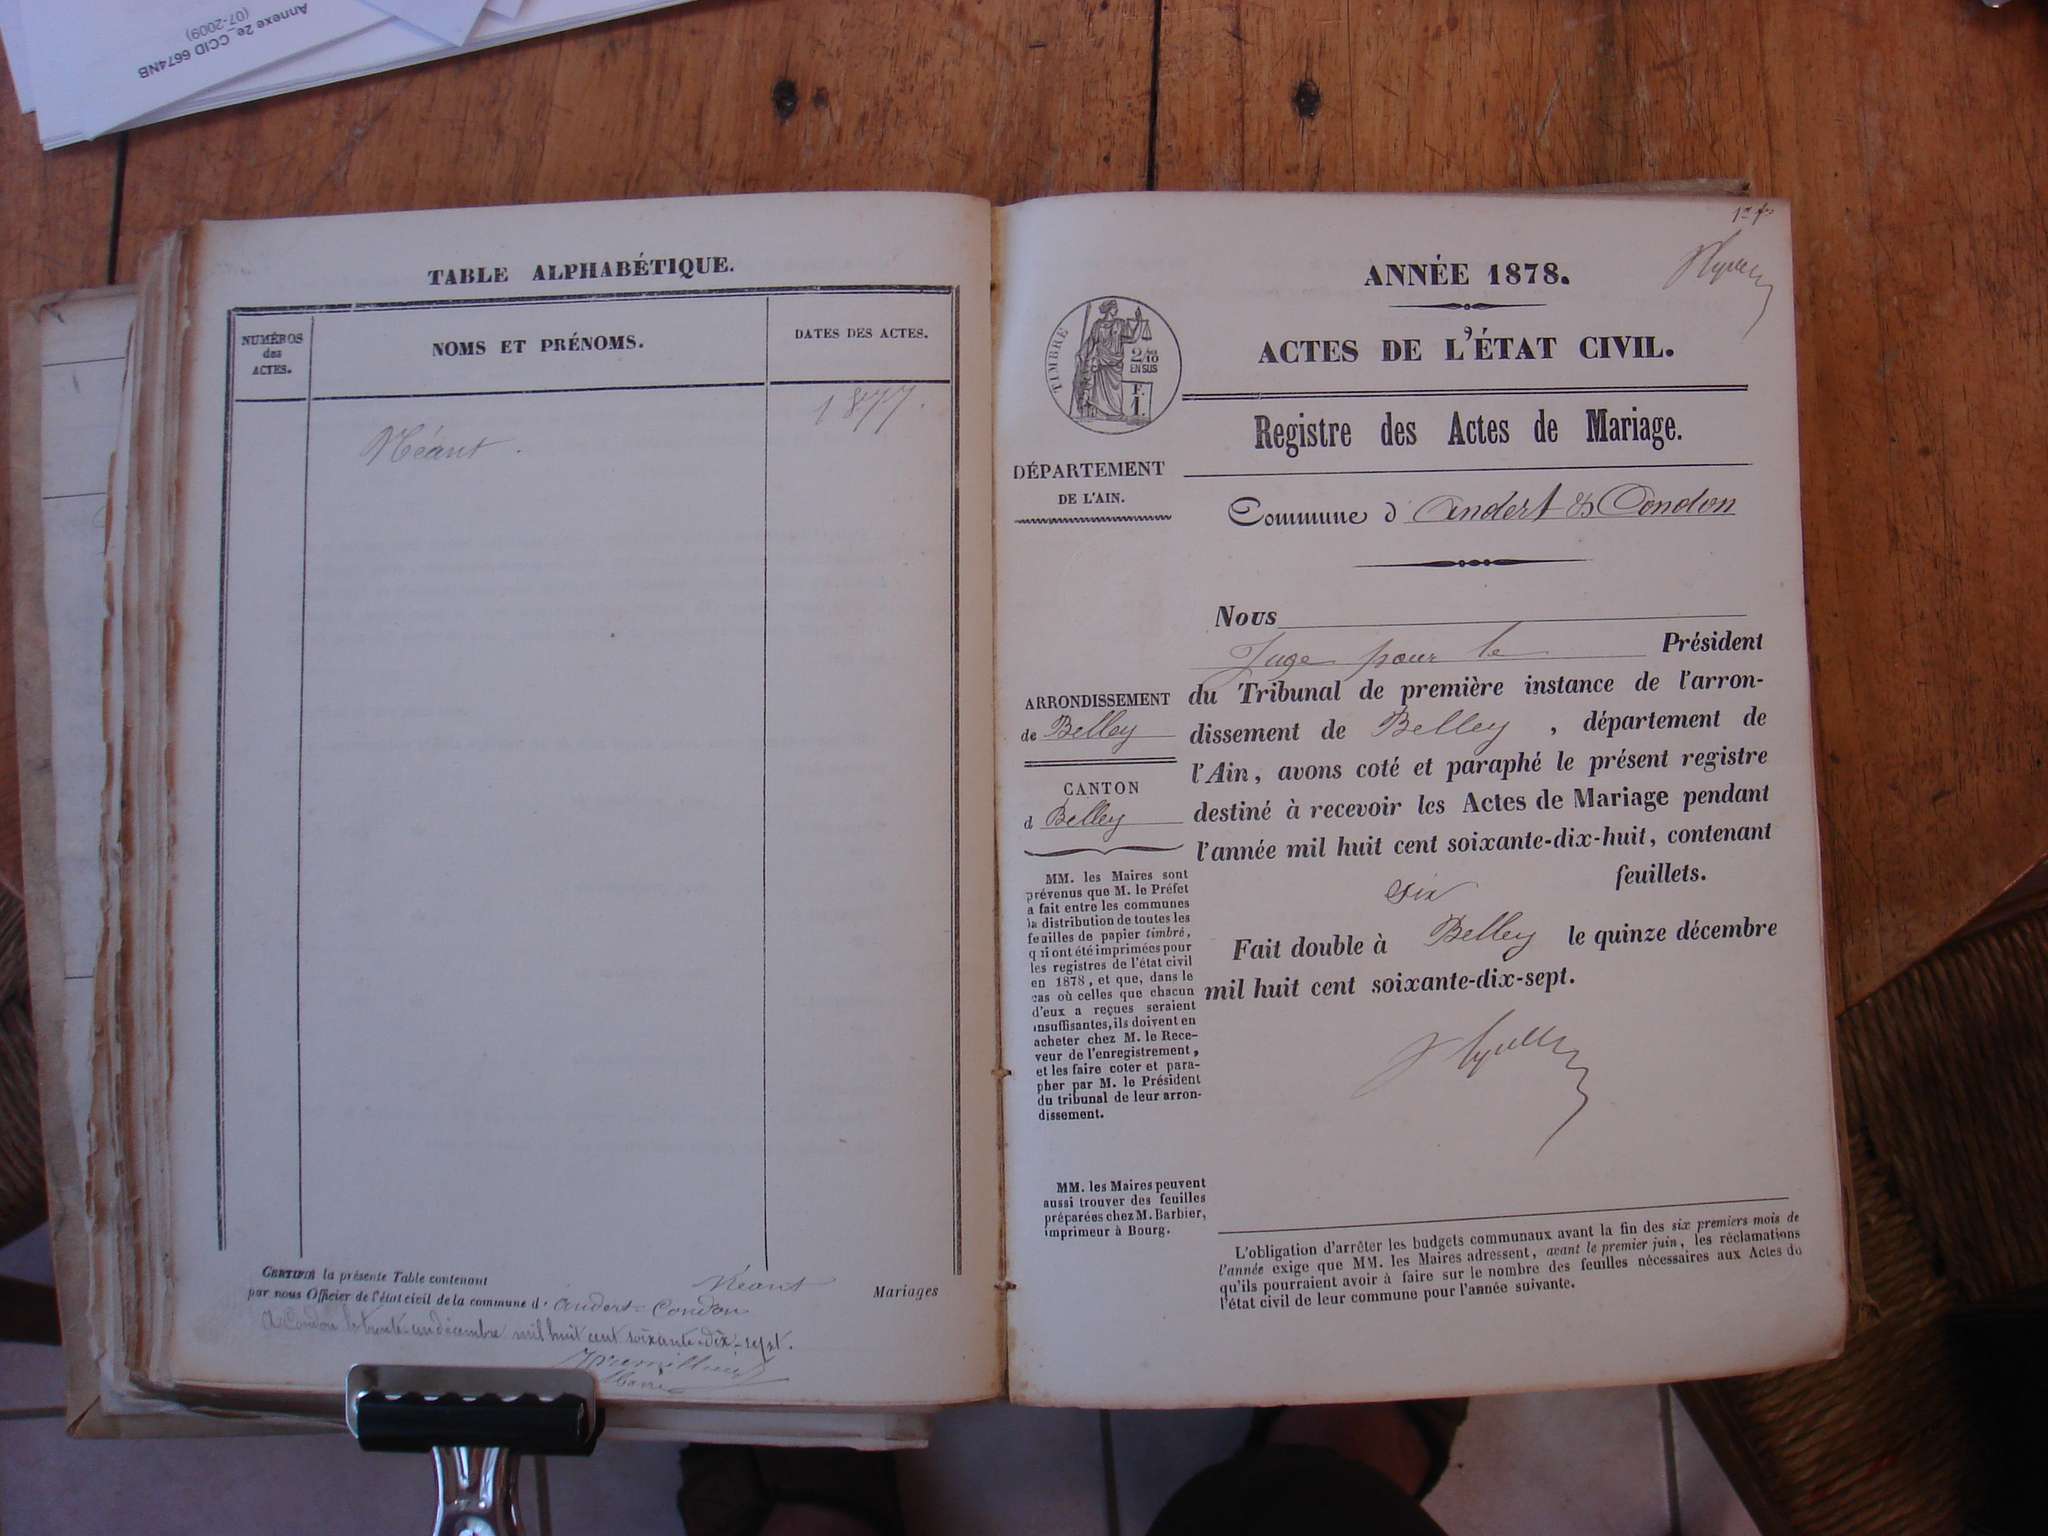 Annexe 2e_CCID 6674NB
(07-2009)
TABLE ALPHABÉTIQUE.
NUMÉROS
des
ACTES.
NOMS ET PRÉNOMS.
DATES DES ACTES.
1877.
Néant.
CERTIFIÉ la présente Table contenant Néant Mariages
par nous Officier de l'état civil de la commune d'Andert-Condon
A Condon le trente-un décembre mil huit cent soixante-dix-sept.
Maire
ANNÉE 1878.
ACTES DE L'ÉTAT CIVIL.
TIMBRE
2/10
EN SUS
F.
1.
Registre des Actes de Mariage.
DÉPARTEMENT
DE L'AIN.
Commune d'Andert & Condon
Nous
Juge pour le Président
du Tribunal de première instance de l'arron-
dissement de Belley, département de
l'Ain, avons coté et paraphé le présent registre
destiné à recevoir les Actes de Mariage pendant
l'année mil huit cent soixante-dix-huit, contenant
six feuillets.
Fait double à Belley le quinze décembre
mil huit cent soixante-dix-sept.
ARRONDISSEMENT
de Belley
CANTON
d Belley
MM. les Maires sont
prévenus que M. le Préfet
a fait entre les communes
la distribution de toutes les
feuilles de papier timbré,
qui ont été imprimées pour
les registres de l'état civil
en 1878, et que, dans le
cas où celles que chacun
d'eux a reçues seraient
insuffisantes, ils doivent en
acheter chez M. le Rece-
veur de l'enregistrement,
et les faire coter et para-
pher par M. le Président
du tribunal de leur arron-
dissement.
MM. les Maires peuvent
aussi trouver des feuilles
préparées chez M. Barbier,
imprimeur à Bourg.
L'obligation d'arrêter les budgets communaux avant la fin des six premiers mois de
l'année exige que MM. les Maires adressent, avant le premier juin, les réclamations
qu'ils pourraient avoir à faire sur le nombre des feuilles nécessaires aux Actes de
l'état civil de leur commune pour l'année suivante.